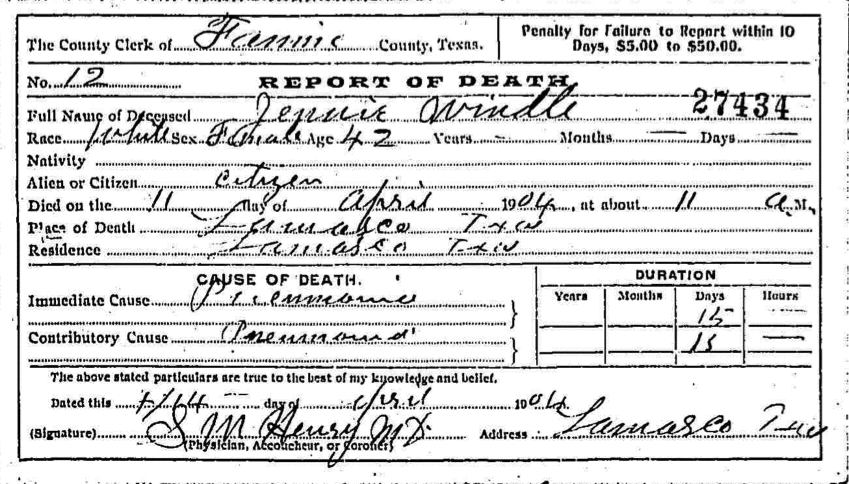 The County Clerk of Fannin County, Texas.
Penalty for Failure to Report within 10
Days, $5.00 to $50.00.
No. 12 REPORT OF DEATH
27434
Full Name of Deceased Jennie Windle
Race White Sex Female Age 42 Years - Months — Days —
Nativity
Alien or Citizen citizen
Died on the 11 day of April 1904, at about 11 a.M.
Place of Death Lamasco Tex
Residence Lamasco Tex
CAUSE OF DEATH.
DURATION
Years Months Days Hours
Immediate Cause Pneumonia 15 —
Contributory Cause Pneumonia 15 —
The above stated particulars are true to the best of my knowledge and belief.
Dated this 14 — day of April 1904
(Signature) S M Henry MD Address Lamasco Tex
(Physician, Accoucheur, or Coroner)